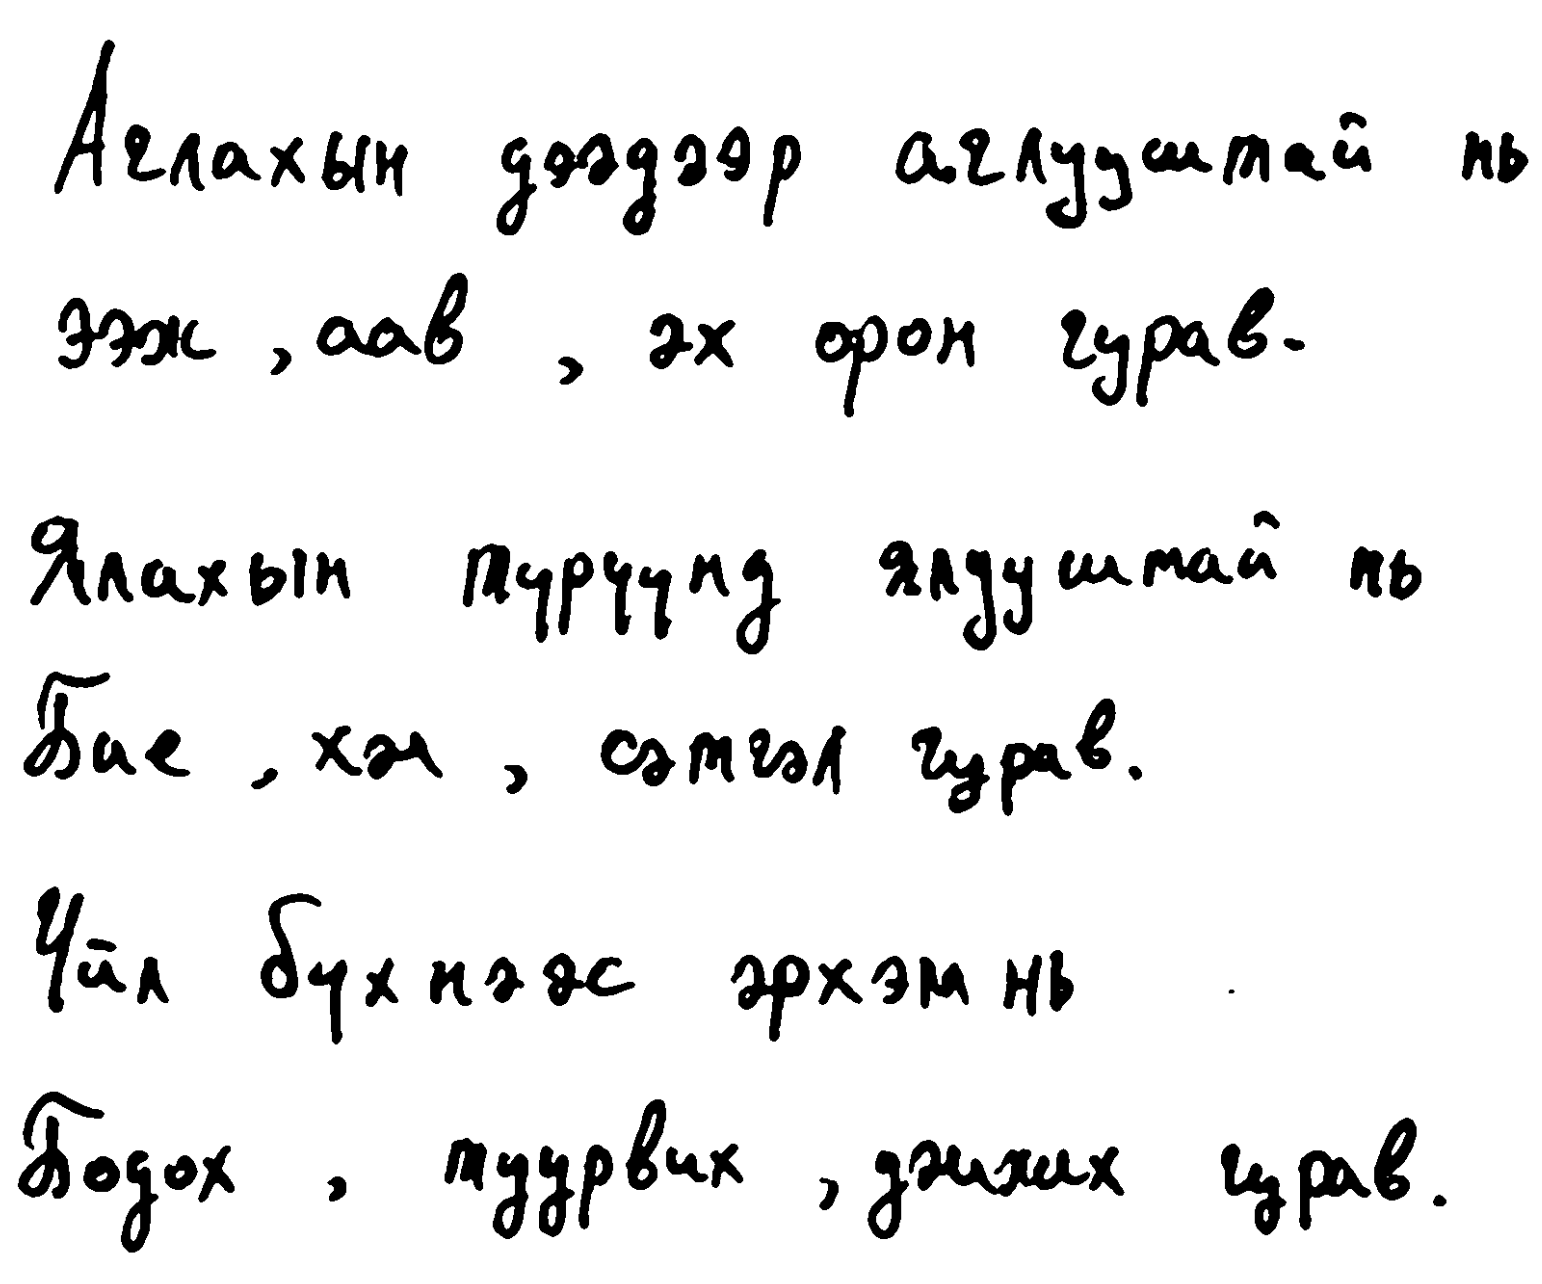 Аглахын дээдээр аглууштай нь
ээж, аав, эх орон гурав.
Ялахын түрүүнд ялууштай нь
Бие, хэл, сэтгэл гурав.
Үйл бүхнээс эрхэм нь
Бодох, туурвих, дэмжих гурав.